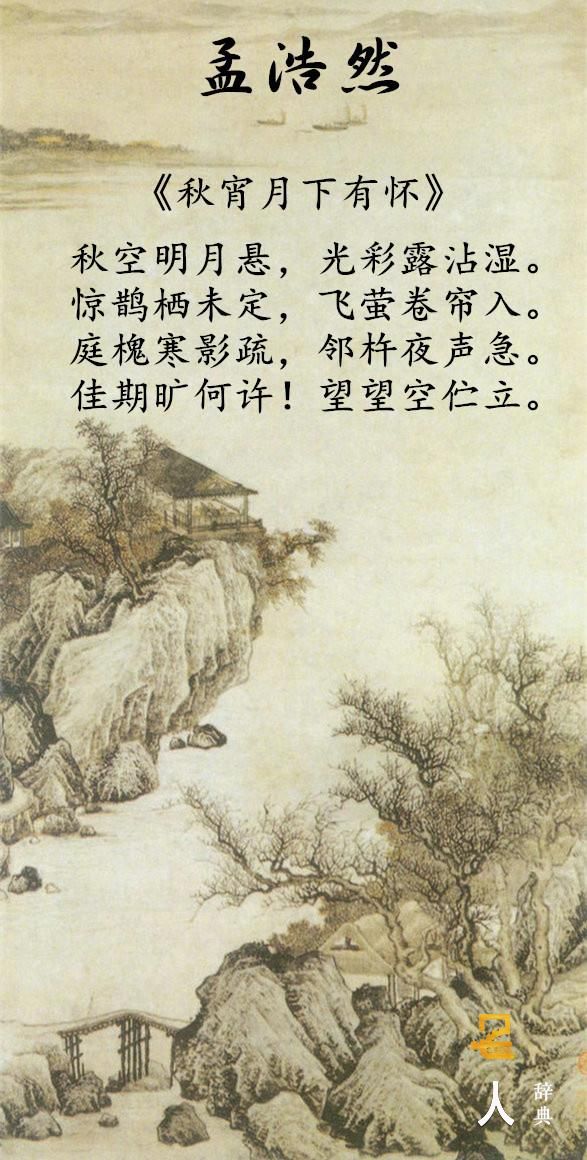 孟浩然
《秋宵月下有怀》
秋空明月悬，光彩露沾湿。
惊鹊栖未定，飞萤卷帘入。
庭槐寒影疏，邻杵夜声急。
佳期旷何许！望望空伫立。
名人
辞典